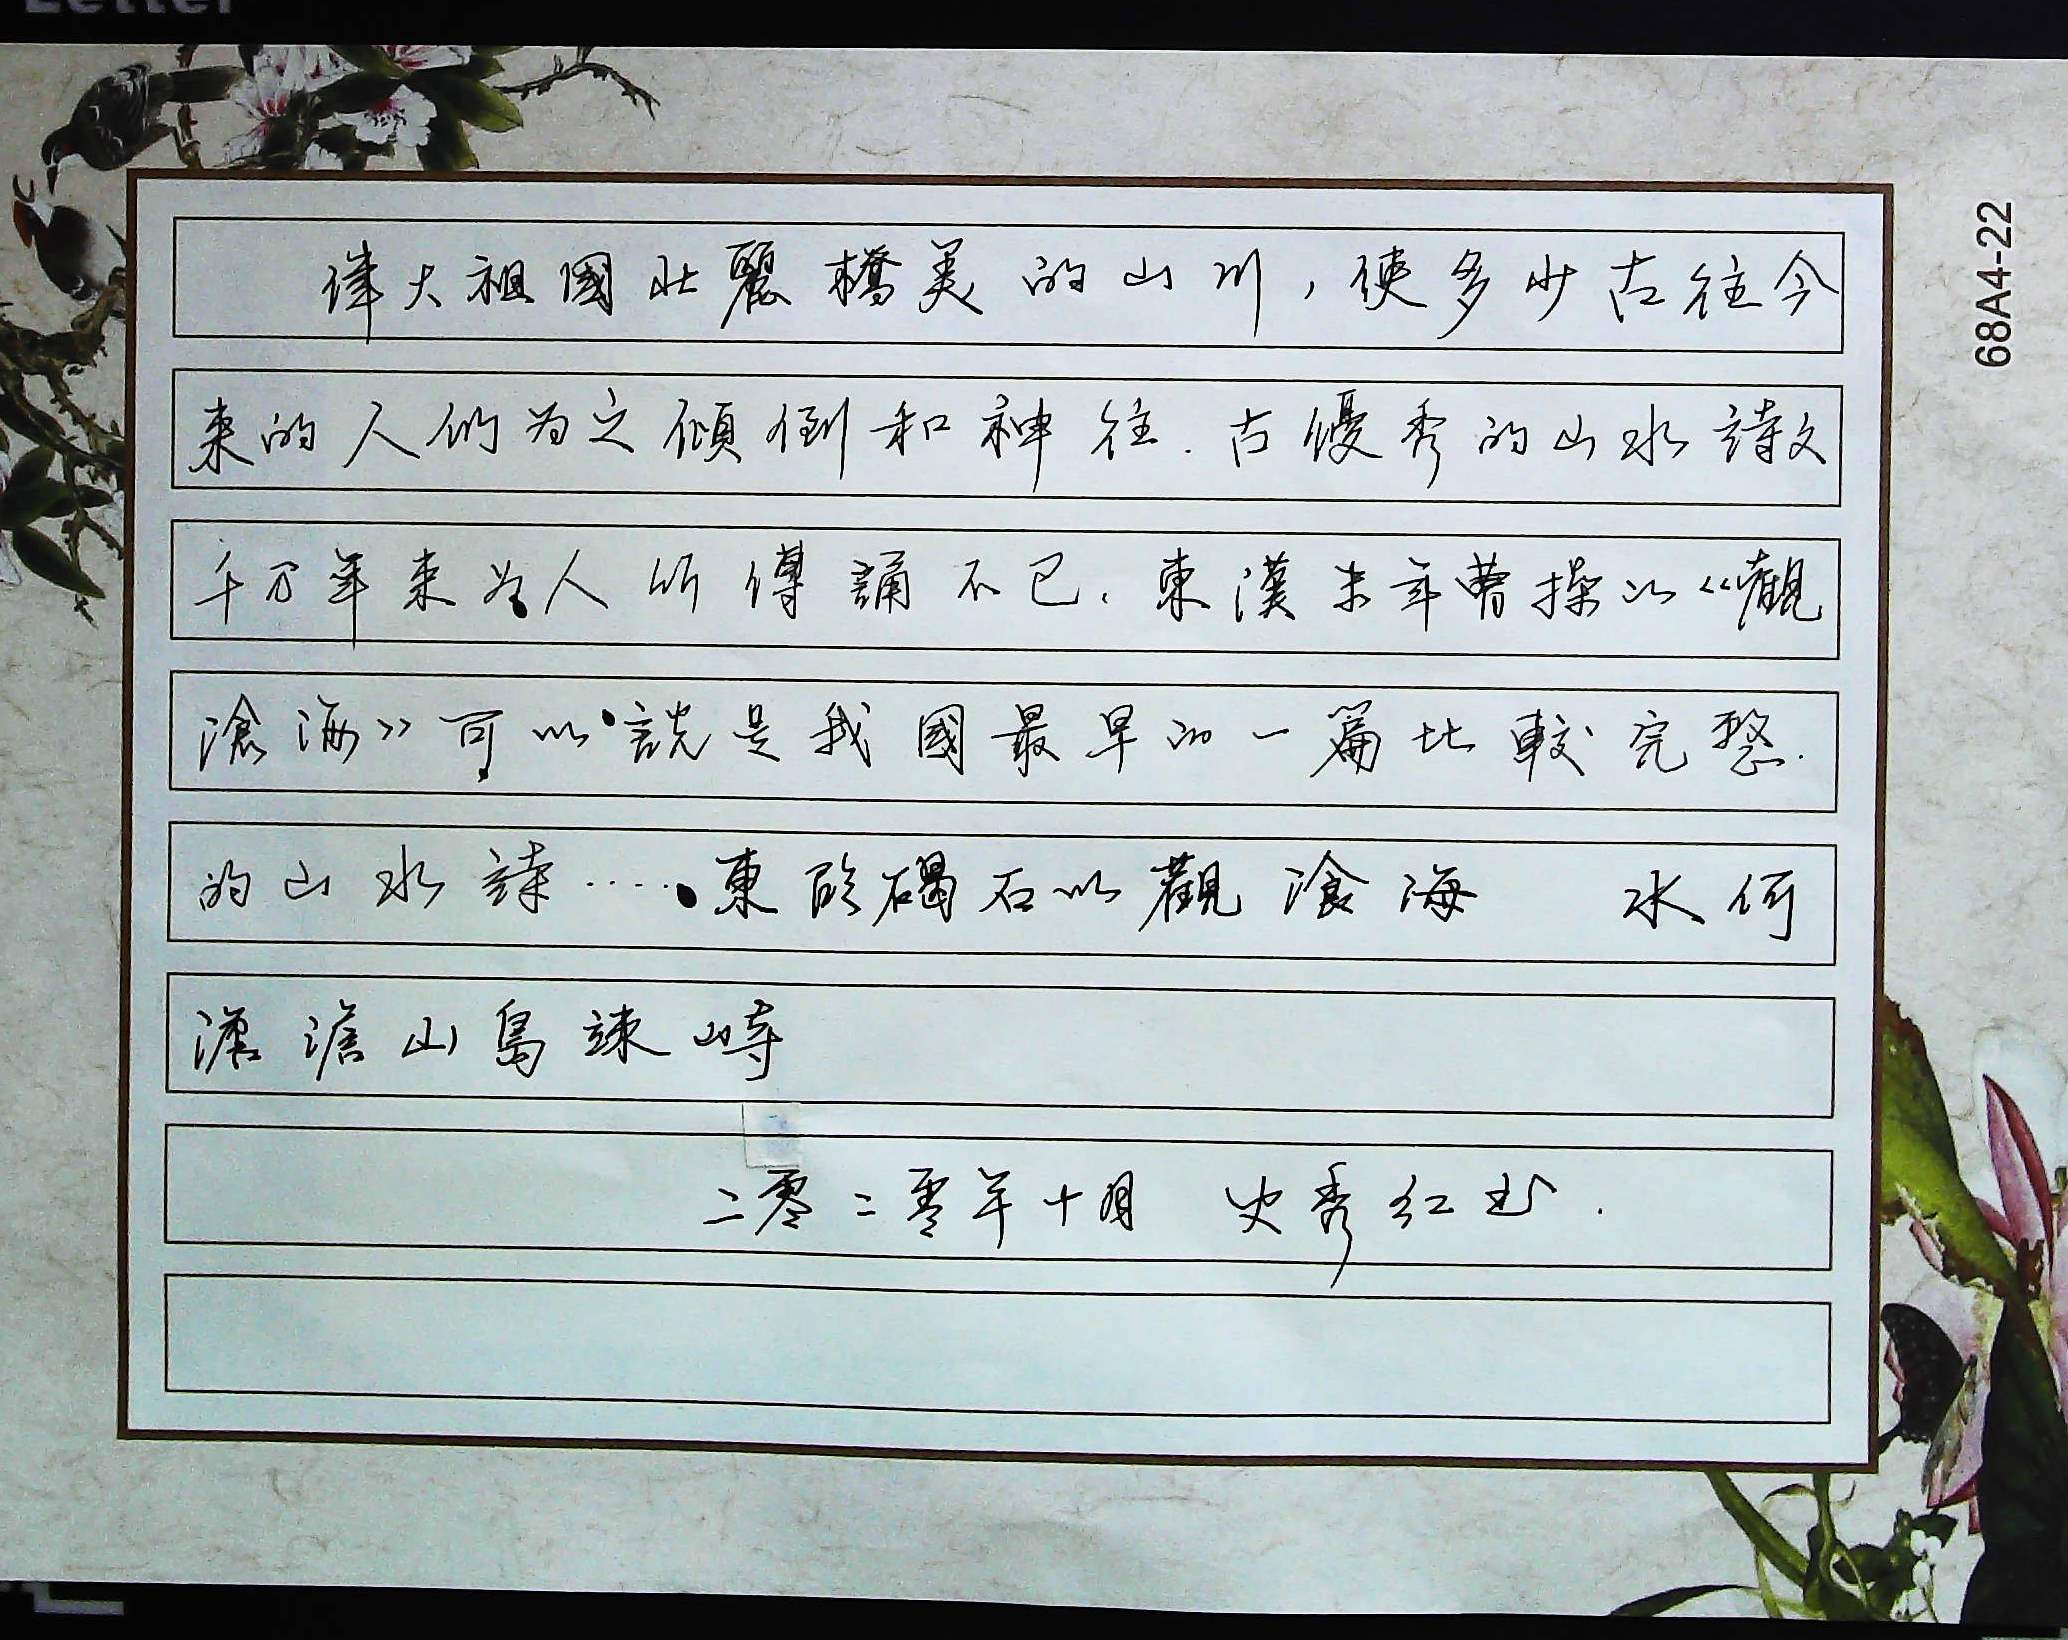 Letter
68A4-22
偉大祖國壯麗橋美的山川，使多少古往今
來的人們為之傾倒和神往.古優秀的山水詩文
千万年来為人所傳誦不已.東漢末年曹操以《觀
滄海》可以說是我國最早的一篇比較完整.
的山水詩……東臨碣石以觀滄海 水何
澹澹山島竦峙
二零二零年十月 史秀红书.